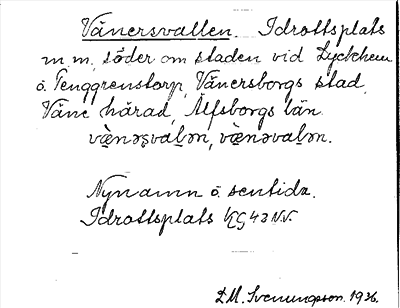 Vänersvallen. Idrottsplats
m.m, söder om staden vid Lyckhem
o. Tenggrenstorp, Vänersborgs stad,
Väne härad, Älfsborgs län
Nynamn o. sentida.
Idrottsplats
D.M. Svenungsson. 1936.